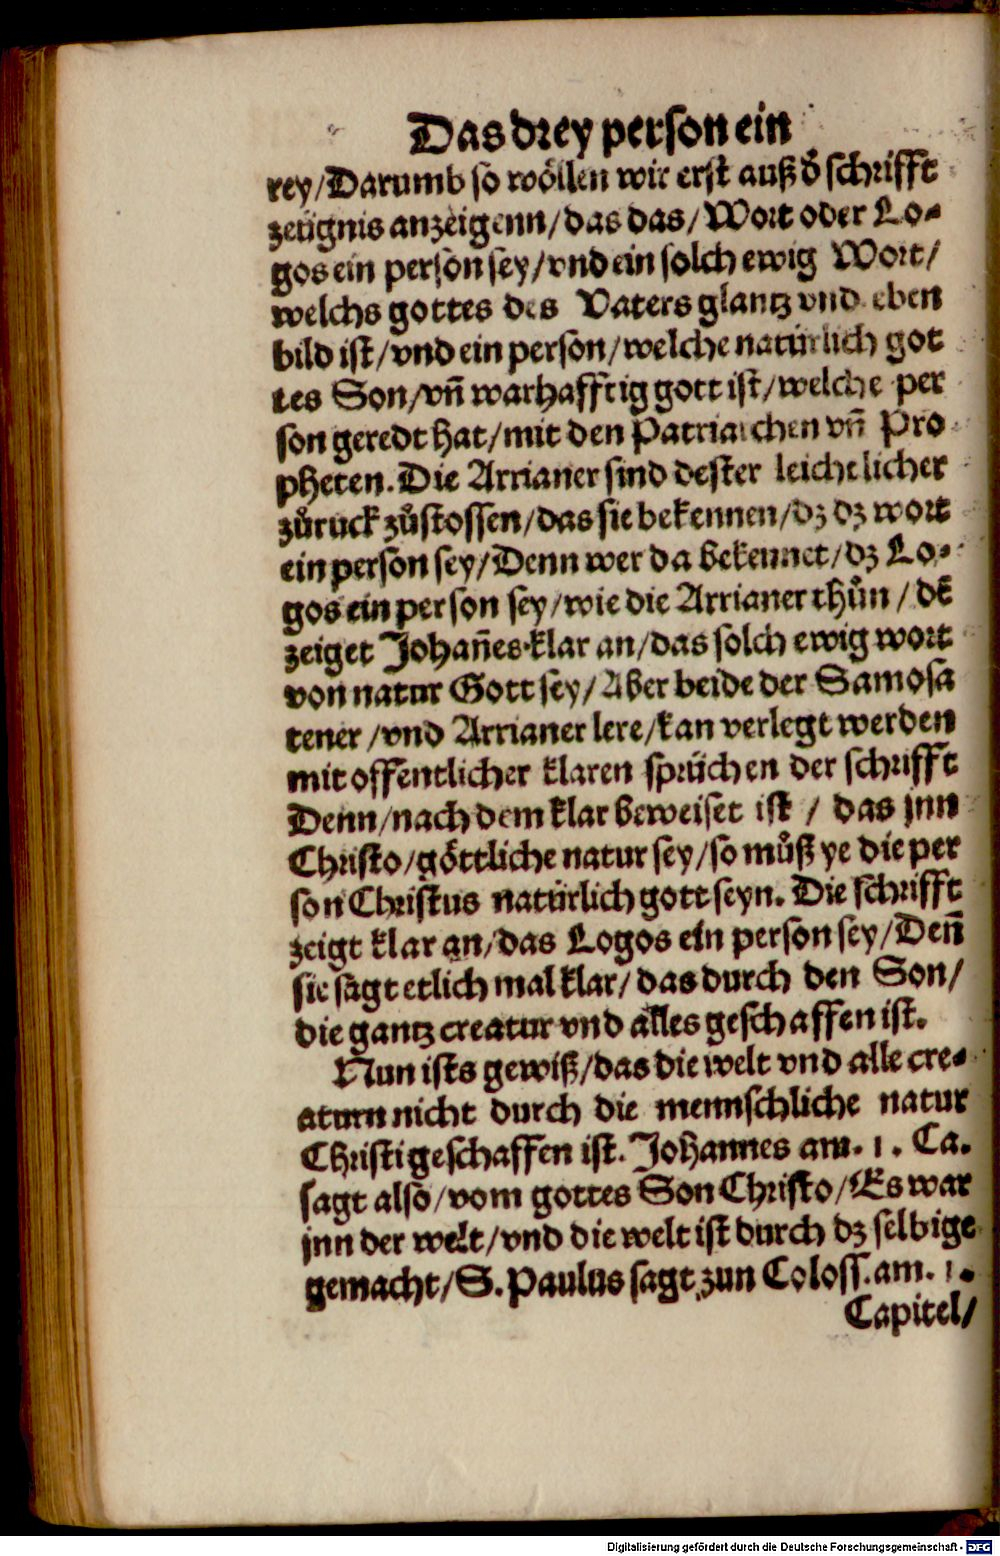 Das drey person ein
rey/Darumb so wöllen wir erst auß d̕ schrifft
zeügnis anzeigenn/das das/Wort oder Lo⸗
gos ein person sey/vnd ein solch ewig Wort/
welchs gottes des Vaters glantz vnd eben
bild ist/vnd ein person/welche natürlich got
tes Son/vñ warhafftig gott ist/welche per
son geredt hat/mit den Patriarchen vñ Pro
pheten. Die Arrianer sind dester leichtlicher
zůruck zůstossen/das sie bekennen/dz dz wort
ein person sey/Denn wer da bekennet/dz Lo⸗
gos ein person sey/wie die Arrianer thůn/dẽ
zeiget Johañes klar an/das solch ewig wort
von natur Gott sey/Aber beide der Samosa
tener/vnd Arrianer lere/kan verlegt werden
mit offentlicher klaren sprüchen der schrifft
Denn/nach dem klar beweiset ist/das jnn
Christo/göttliche natur sey/so můß ye die per
son Christus natürlich gott seyn. Die schrifft
zeigt klar an/das Logos ein person sey/Deñ
sie sagt etlich mal klar/das durch den Son/
die gantz creatur vnd alles geschaffen ist.
Nun ists gewiß/das die welt vnd alle cre⸗
aturn nicht durch die mennschliche natur
Christi geschaffen ist. Johannes am. 1. Ca.
sagt also/vom gottes Son Christo/Es war
jnn der welt/vnd die welt ist durch dz selbige
gemacht/S. Paulus sagt zun Coloss. am. 1.
Capitel/
Digitalisierung gefördert durch die Deutsche Forschungsgemeinschaft - DFG